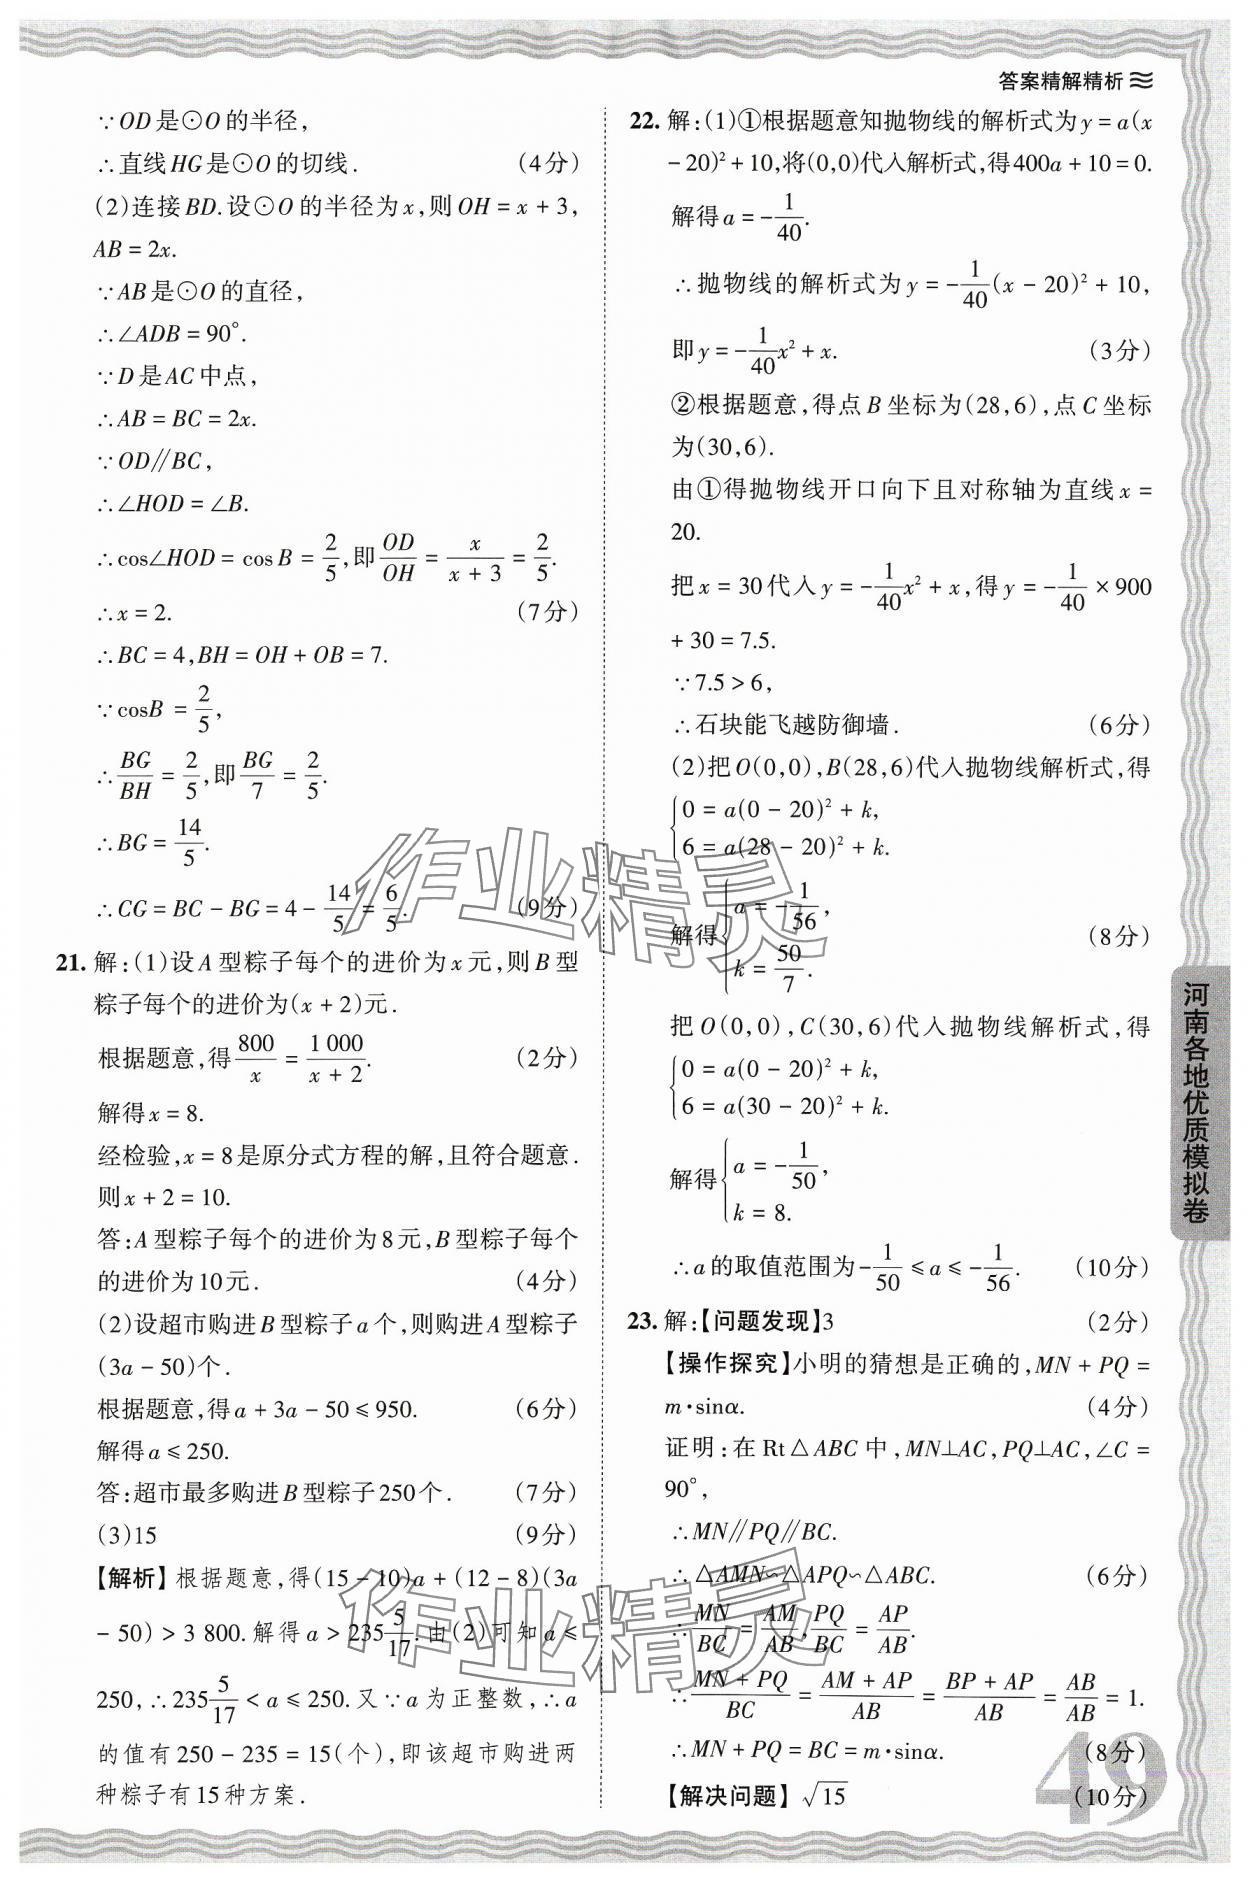 答案精解精析
∵OD是⊙O的半径，
∴直线HG是⊙O的切线. (4分)
(2)连接BD.设⊙O的半径为x,则OH=x+3,
AB=2x.
∵AB是⊙O的直径，
∴∠ADB=90°.
∵D是AC中点，
∴AB=BC=2x.
∵OD∥BC,
∴∠HOD=∠B.
∴cos∠HOD=cosB=2/5,即OD/OH=x/(x+3)=2/5.
∴x=2. (7分)
∴BC=4,BH=OH+OB=7.
∵cosB=2/5,
∴BG/BH=2/5,即BG/7=2/5.
∴BG=14/5.
∴CG=BC-BG=4-14/5=6/5. (9分)
21.解:(1)设A型粽子每个的进价为x元,则B型
粽子每个的进价为(x+2)元.
根据题意,得800/x=1 000/(x+2). (2分)
解得x=8.
经检验,x=8是原分式方程的解,且符合题意.
则x+2=10.
答:A型粽子每个的进价为8元,B型粽子每个
的进价为10元. (4分)
(2)设超市购进B型粽子a个,则购进A型粽子
(3a-50)个.
根据题意,得a+3a-50≤950. (6分)
解得a≤250.
答:超市最多购进B型粽子250个. (7分)
(3)15 (9分)
【解析】根据题意,得(15-10)a+(12-8)(3a
-50)>3 800.解得a>235 5/17.由(2)可知a≤
250,∴235 5/17<a≤250.又∵a为正整数,∴a
的值有250-235=15(个),即该超市购进两
种粽子有15种方案.
22.解:(1)①根据题意知抛物线的解析式为y=a(x
-20)²+10,将(0,0)代入解析式,得400a+10=0.
解得a=-1/40.
∴抛物线的解析式为y=-1/40(x-20)²+10,
即y=-1/40x²+x. (3分)
②根据题意,得点B坐标为(28,6),点C坐标
为(30,6).
由①得抛物线开口向下且对称轴为直线x=
20.
把x=30代入y=-1/40x²+x,得y=-1/40×900
+30=7.5.
∵7.5>6,
∴石块能飞越防御墙. (6分)
(2)把O(0,0),B(28,6)代入抛物线解析式,得
{0=a(0-20)²+k,
6=a(28-20)²+k.
解得{a=-1/56,
k=50/7. (8分)
把O(0,0),C(30,6)代入抛物线解析式,得
{0=a(0-20)²+k,
6=a(30-20)²+k.
解得{a=-1/50,
k=8.
∴a的取值范围为-1/50≤a≤-1/56. (10分)
23.解:【问题发现】3 (2分)
【操作探究】小明的猜想是正确的,MN+PQ=
m·sinα. (4分)
证明:在Rt△ABC中,MN⊥AC,PQ⊥AC,∠C=
90°,
∴MN∥PQ∥BC.
∴△AMN∽△APQ∽△ABC. (6分)
∴MN/BC=AM/AB,PQ/BC=AP/AB.
∴(MN+PQ)/BC=(AM+AP)/AB=(BP+AP)/AB=AB/AB=1.
∴MN+PQ=BC=m·sinα. (8分)
【解决问题】√15 (10分)
河南各地优质模拟卷
49
作业精灵
作业精灵